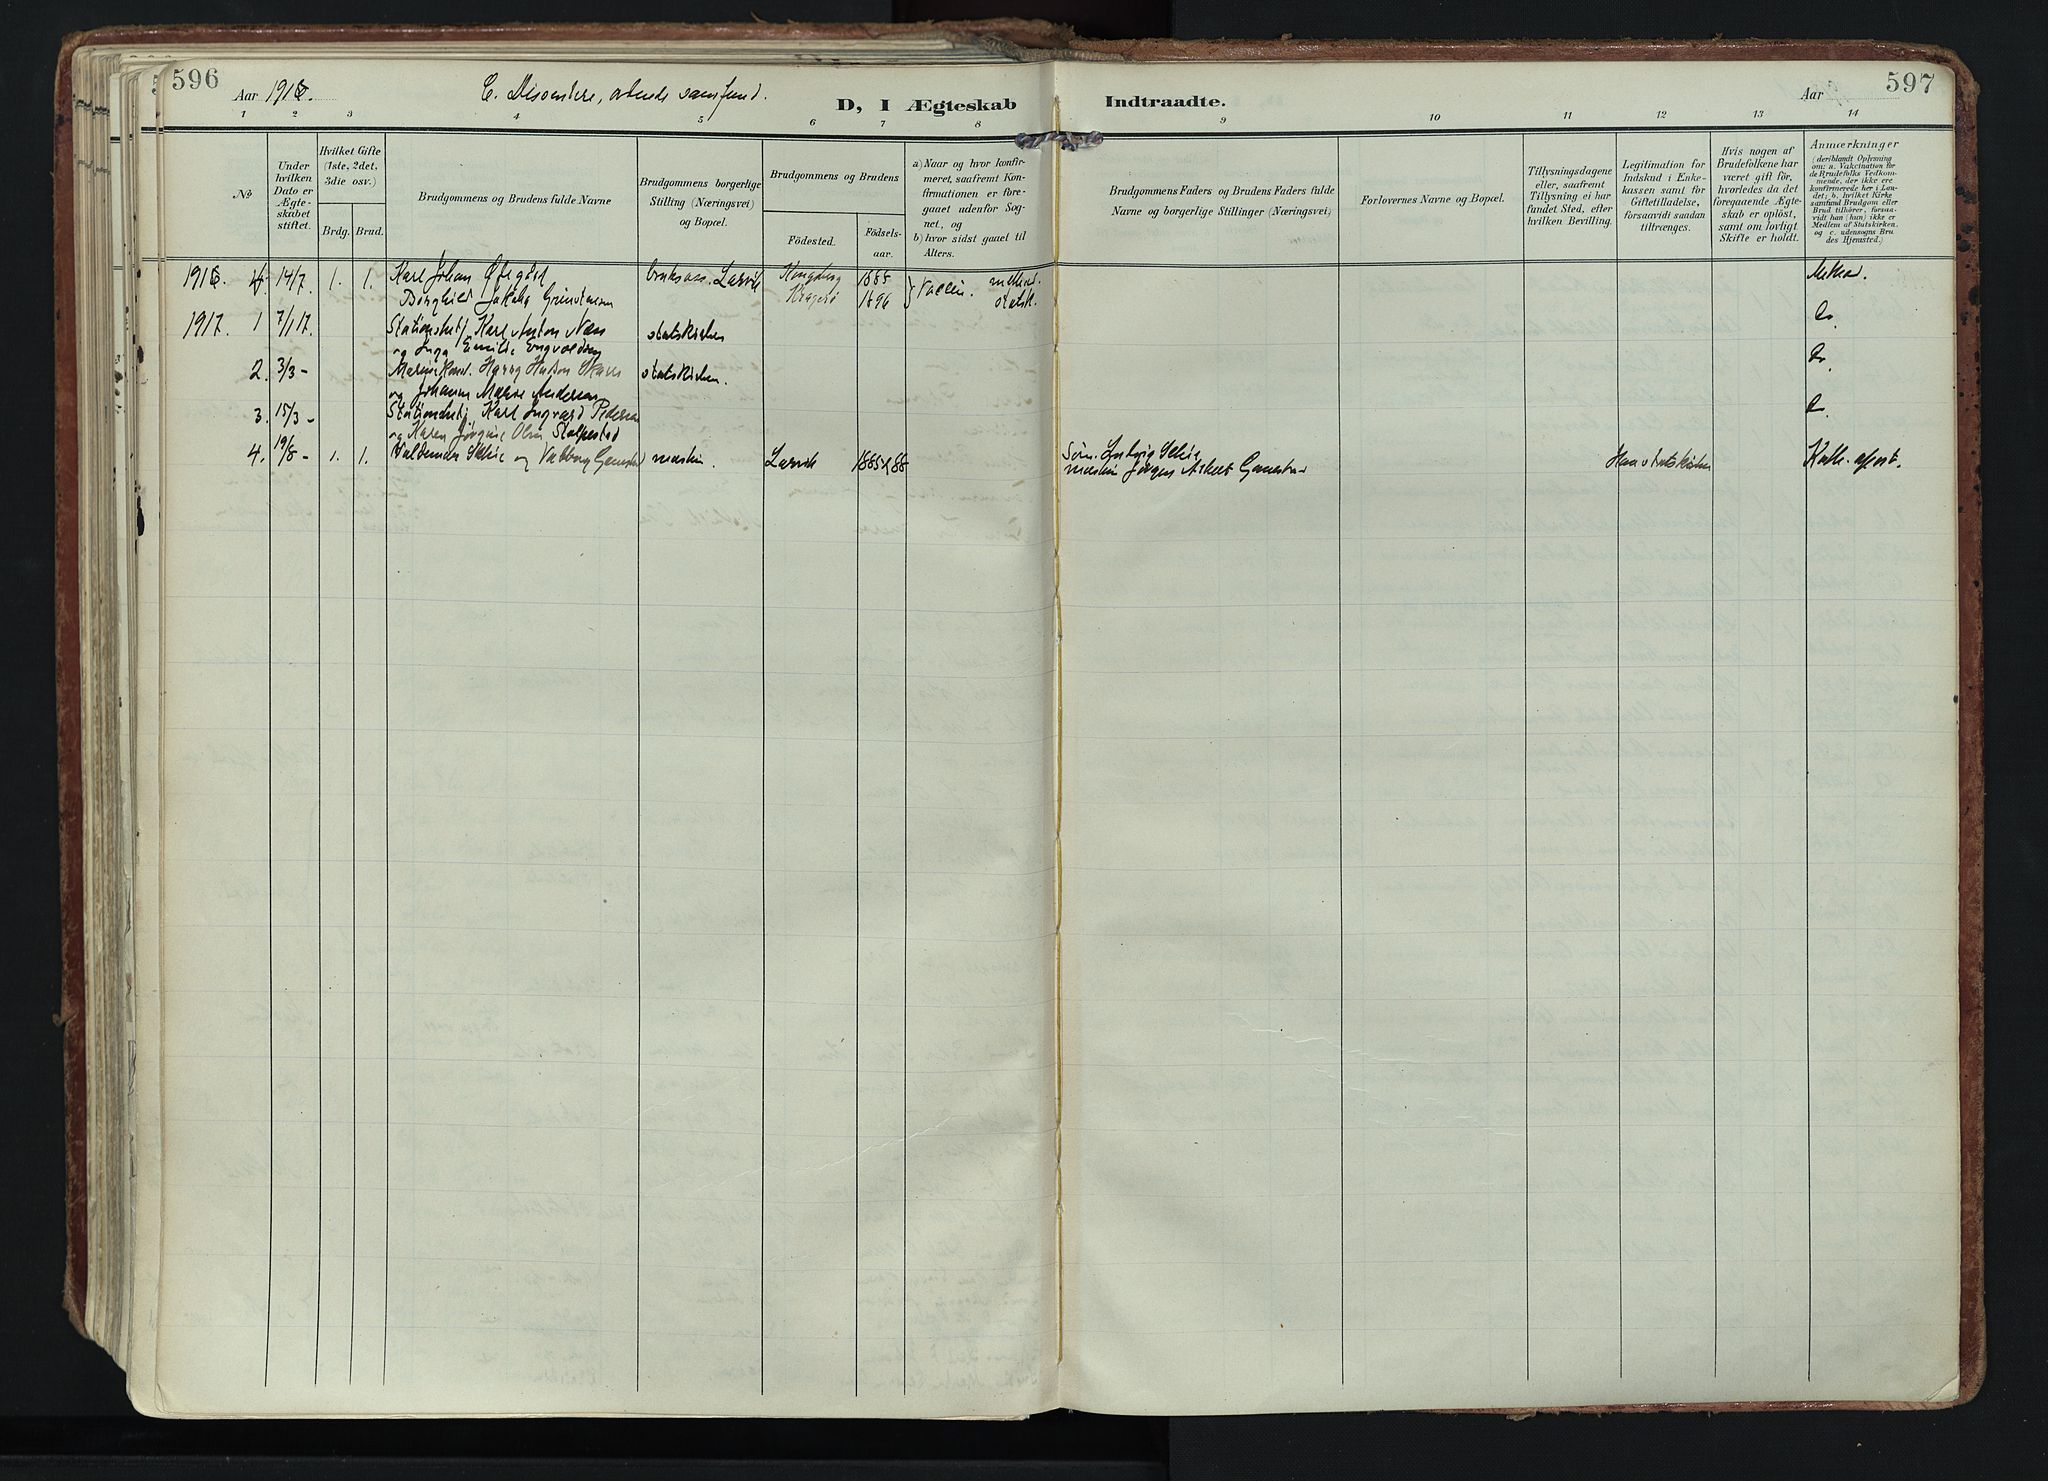 596
Aar 1916.
C. Dissentere, samfund.
D, I Ægteskab
Indtraadte.
Aar
597
1
2
3
4
5
6
7
8
9
10
11
12
13
14
No
Under hvilken Dato er Ægteskabet stiftet.
Hvilket Gifte (1ste, 2det, 3die osv.)
Brdg.
Brud.
Brudgommens og Brudens fulde Navne
Brudgommens borgerlige Stilling (Næringsvei) og Bopæl.
Brudgommens og Brudens
Födested.
Födselsaar.
a) Naar og hvor konfirmeret, saafremt Konfirmationen er foregaaet udenfor Sognet, og
b) hvor sidst gaaet til Alters.
Brudgommens Faders og Brudens Faders fulde Navne og borgerlige Stillinger (Næringsvei)
Forlovernes Navne og Bopæl.
Tillysningsdagene eller, saafremt Tillysning ei har fundet Sted, efter hvilken Bevilling.
Legitimation for Indskud i Enkekassen samt for Giftetilladelse, forsaavidt saadan tiltrænges.
Hvis nogen af Brudefolkene har været gift för, hvorledes da det foregaaende Ægteskab er oplöst, samt om lovligt Skifte er holdt.
Anmærkninger
(deriblandt Oplysning om: a. Vakcination for de Brudefolks Vedkommende, der ikke ere konfirmerede her i Landet; b. hvilket Kirkesamfund Brudgom eller Brud tilhörer, forsaavidt han (hun) ikke er Medlem af Statskirken, og c. udensogns Brudes Hjemsted.)
1916 4 14/7 1. 1. Karl Johan Larvik Kongsberg 1888 method. Method.
Borghild Jakoba Kragerø 1896 statsk.
1917. 1 7/1 17. Stationsbetj Karl Anton Næss statskirken Do.
og Inga Emilie Engvoldsen
2. 3/3 - Harry Hudson statskirken. Do.
og Johanne Marie Andersen
3. 15/3 - Stationsbetj Karl Ingvard Pedersen Do.
og Karen Jørgine Olsen Stolpestad
4. 19/8 - 1. 1. Valdemar og Valborg maskin. Larvik 1885 88 Ludvig Hun statskirken Kath. apost.
maskin Jørgen